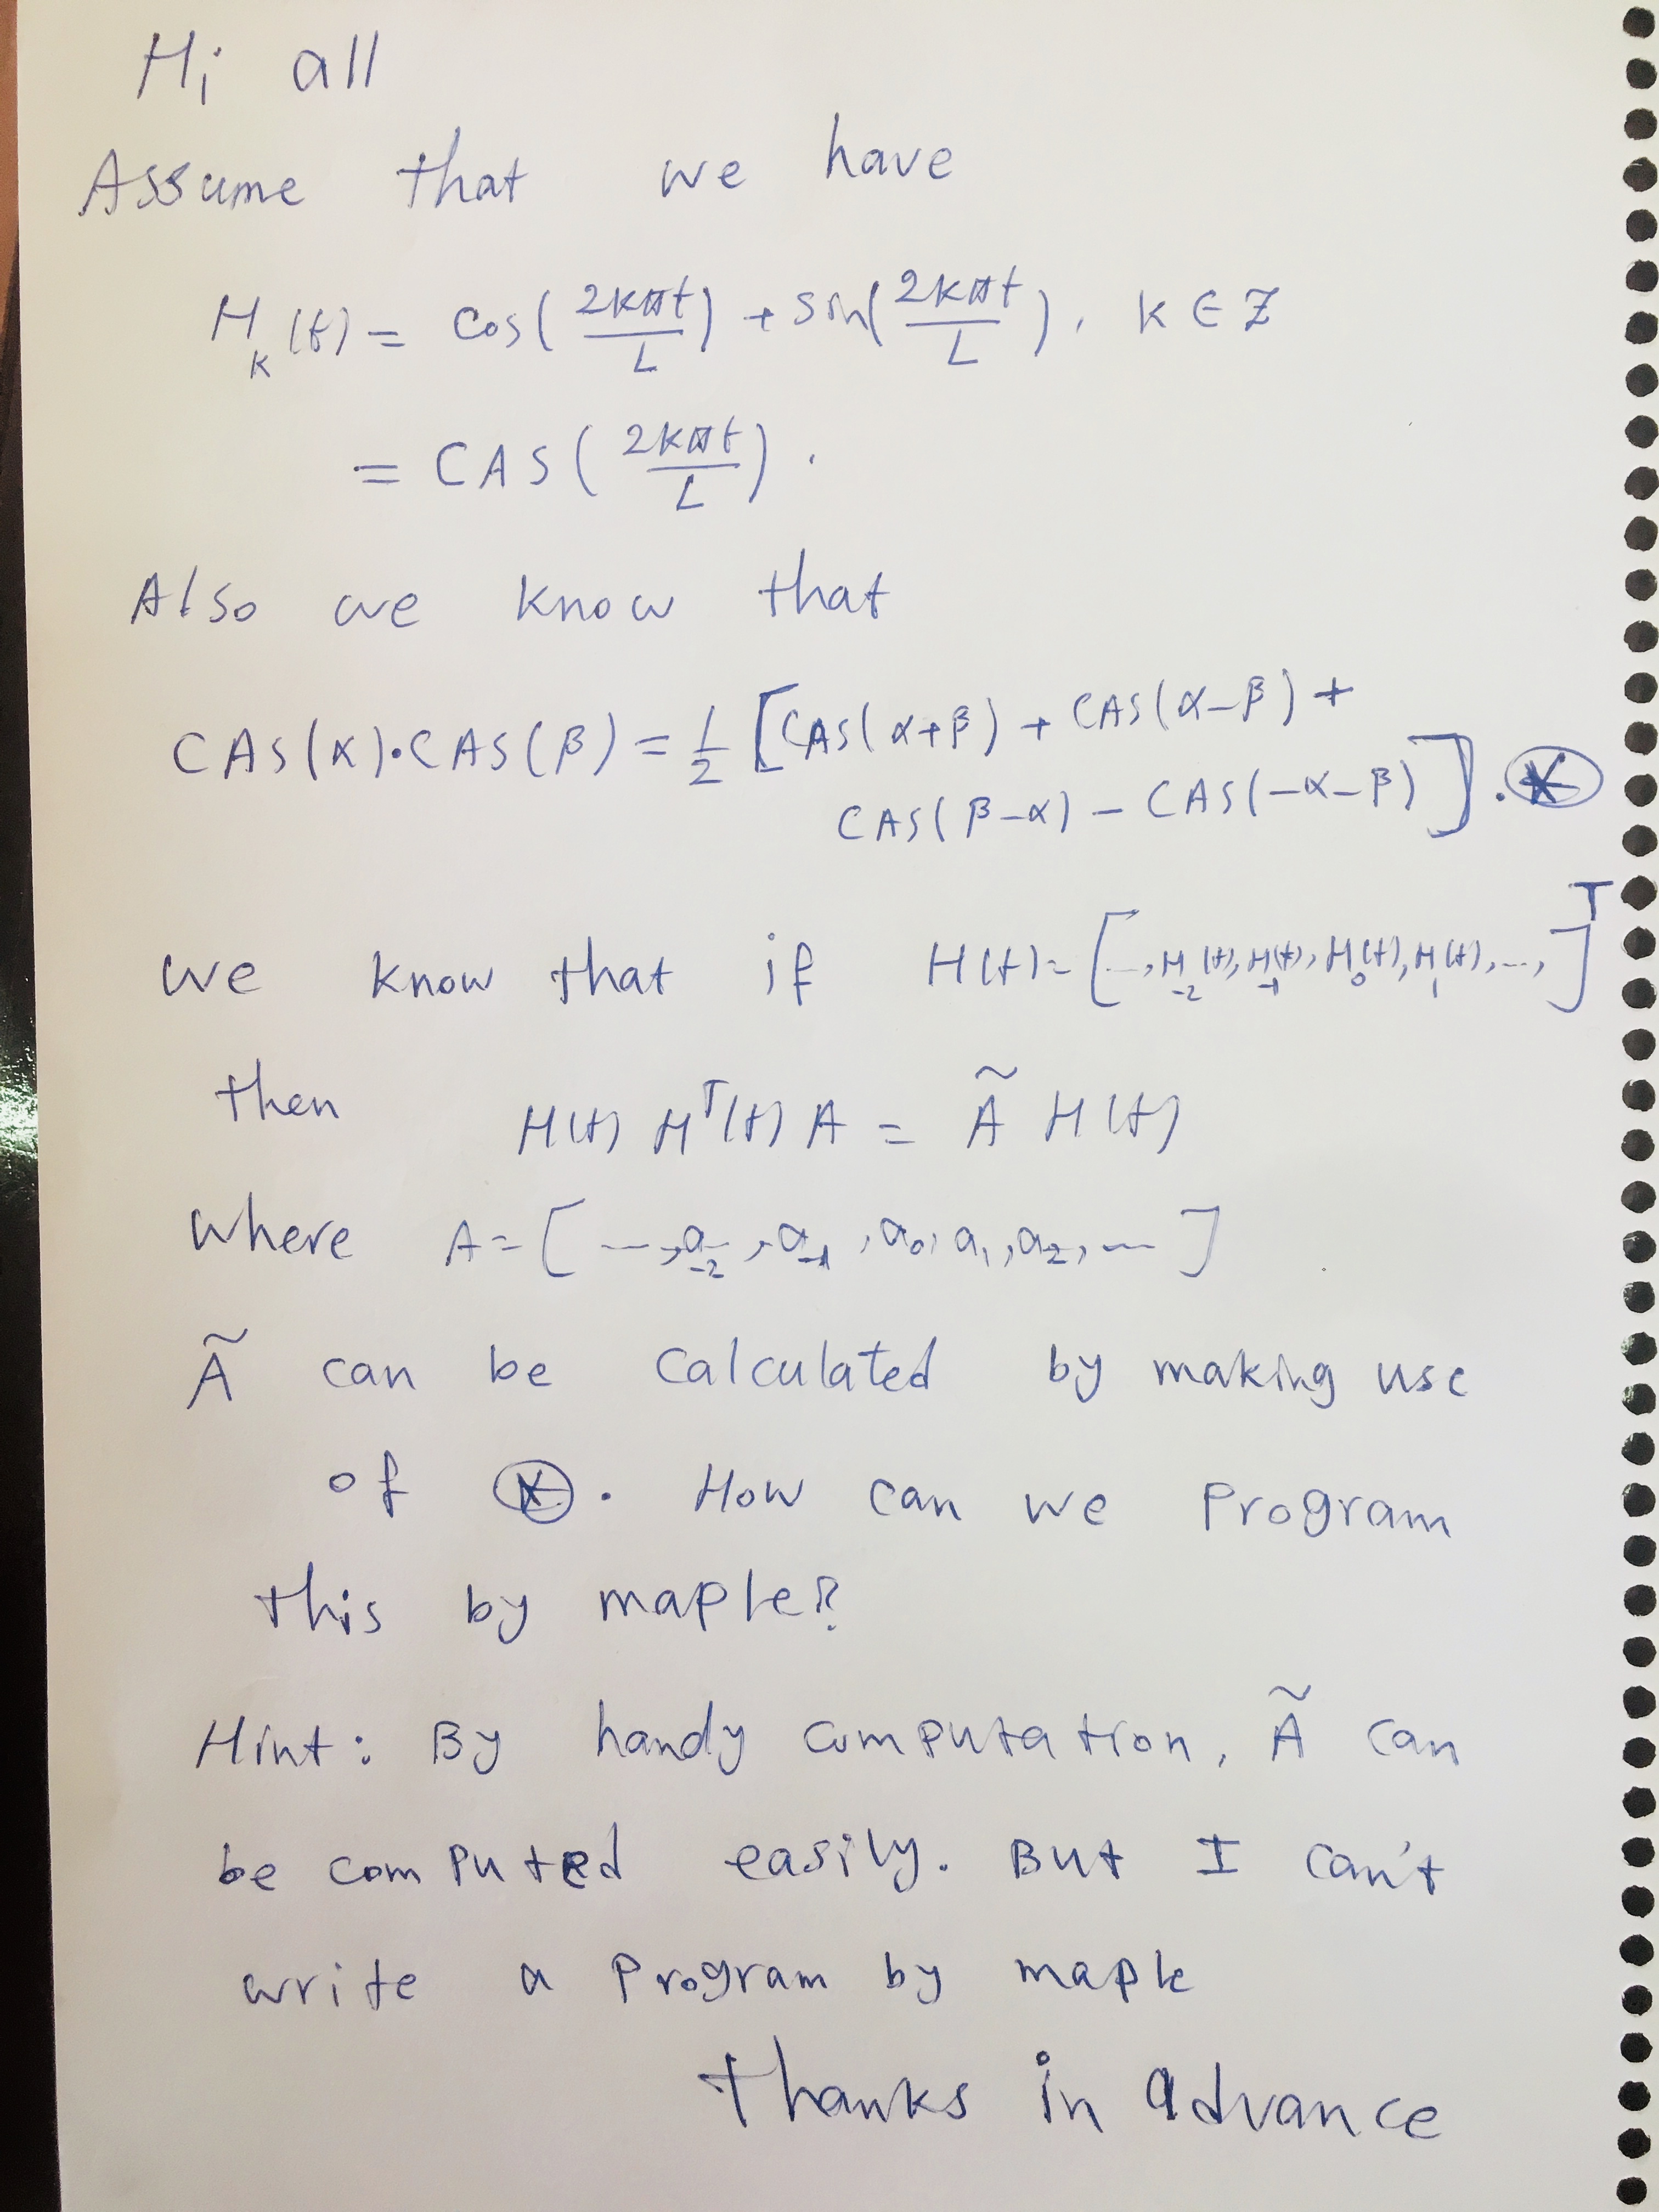 Hi all
Assume that we have
H_k(t) = cos(2kπt/L) + sin(2kπt/L), k ∈ Z
= CAS(2kπt/L).
Also we know that
CAS(α)·CAS(β) = 1/2 [CAS(α+β) + CAS(α-β) +
CAS(β-α) - CAS(-α-β)]. ⊛
we know that if H(t) = [..., H_-2(t), H_-1(t), H_0(t), H_1(t), ...,]^T
then H(t) H^T(t) A = Ã H(t)
where A = [ ---, a_-2, a_-1, a_0, a_1, a_2, --- ]
Ã can be calculated by making use
of ⊛. How can we program
this by maple?
Hint: By handy computation, Ã can
be computed easily. But I can't
write a program by maple
Thanks in advance